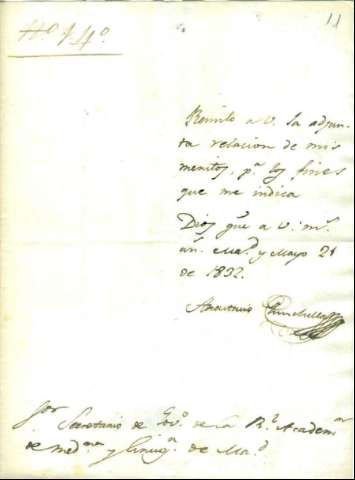 11
Nº 14º
Remito a V. la adjun-
ta relacion de mis
meritos, pª los fines
que me indica
Dios gue a V. mˢ.
añˢ. Madᵈ y Mayo 21
de 1832.
Anastasio Chinchilla
Sor Secretario de Govº. de la Rˡ Academia
de Medna y Cirugª. de Madᵈ